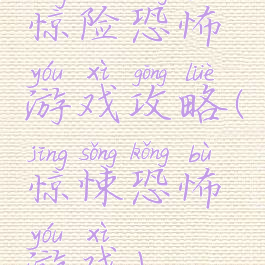 惊险恐怖
yóu xì gōng lüè
游戏攻略(
jīng sǒng kǒng bù
惊悚恐怖
yóu xì
游戏)